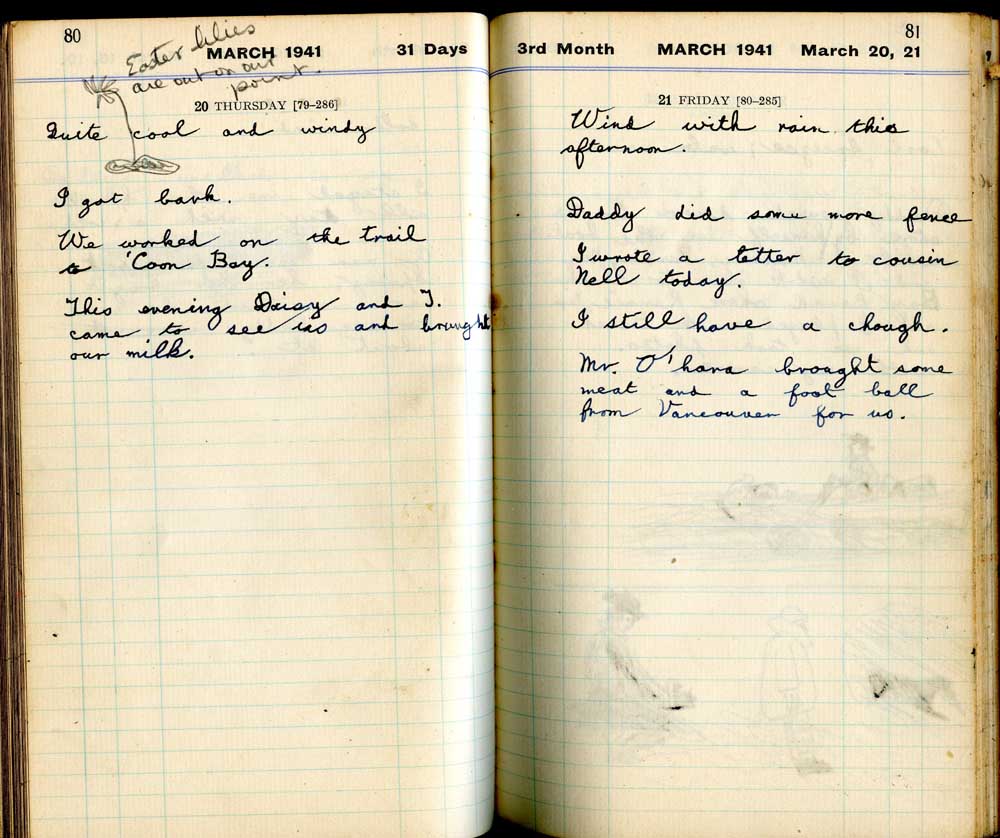 80
Easter lilies
are out on our
point.
MARCH 1941 31 Days
20 THURSDAY [79-286]
Quite cool and windy
I got bark.
We worked on the trail
to 'Coon Bay.
This evening Daisy and J.
came to see us and brought
our milk.
81
3rd Month MARCH 1941 March 20, 21
21 FRIDAY [80-285]
Wind with rain this
afternoon.
Daddy did some more fence
I wrote a letter to cousin
Nell today.
I still have a chough.
Mr. O'hara brought some
meat and a foot ball
from Vancouver for us.